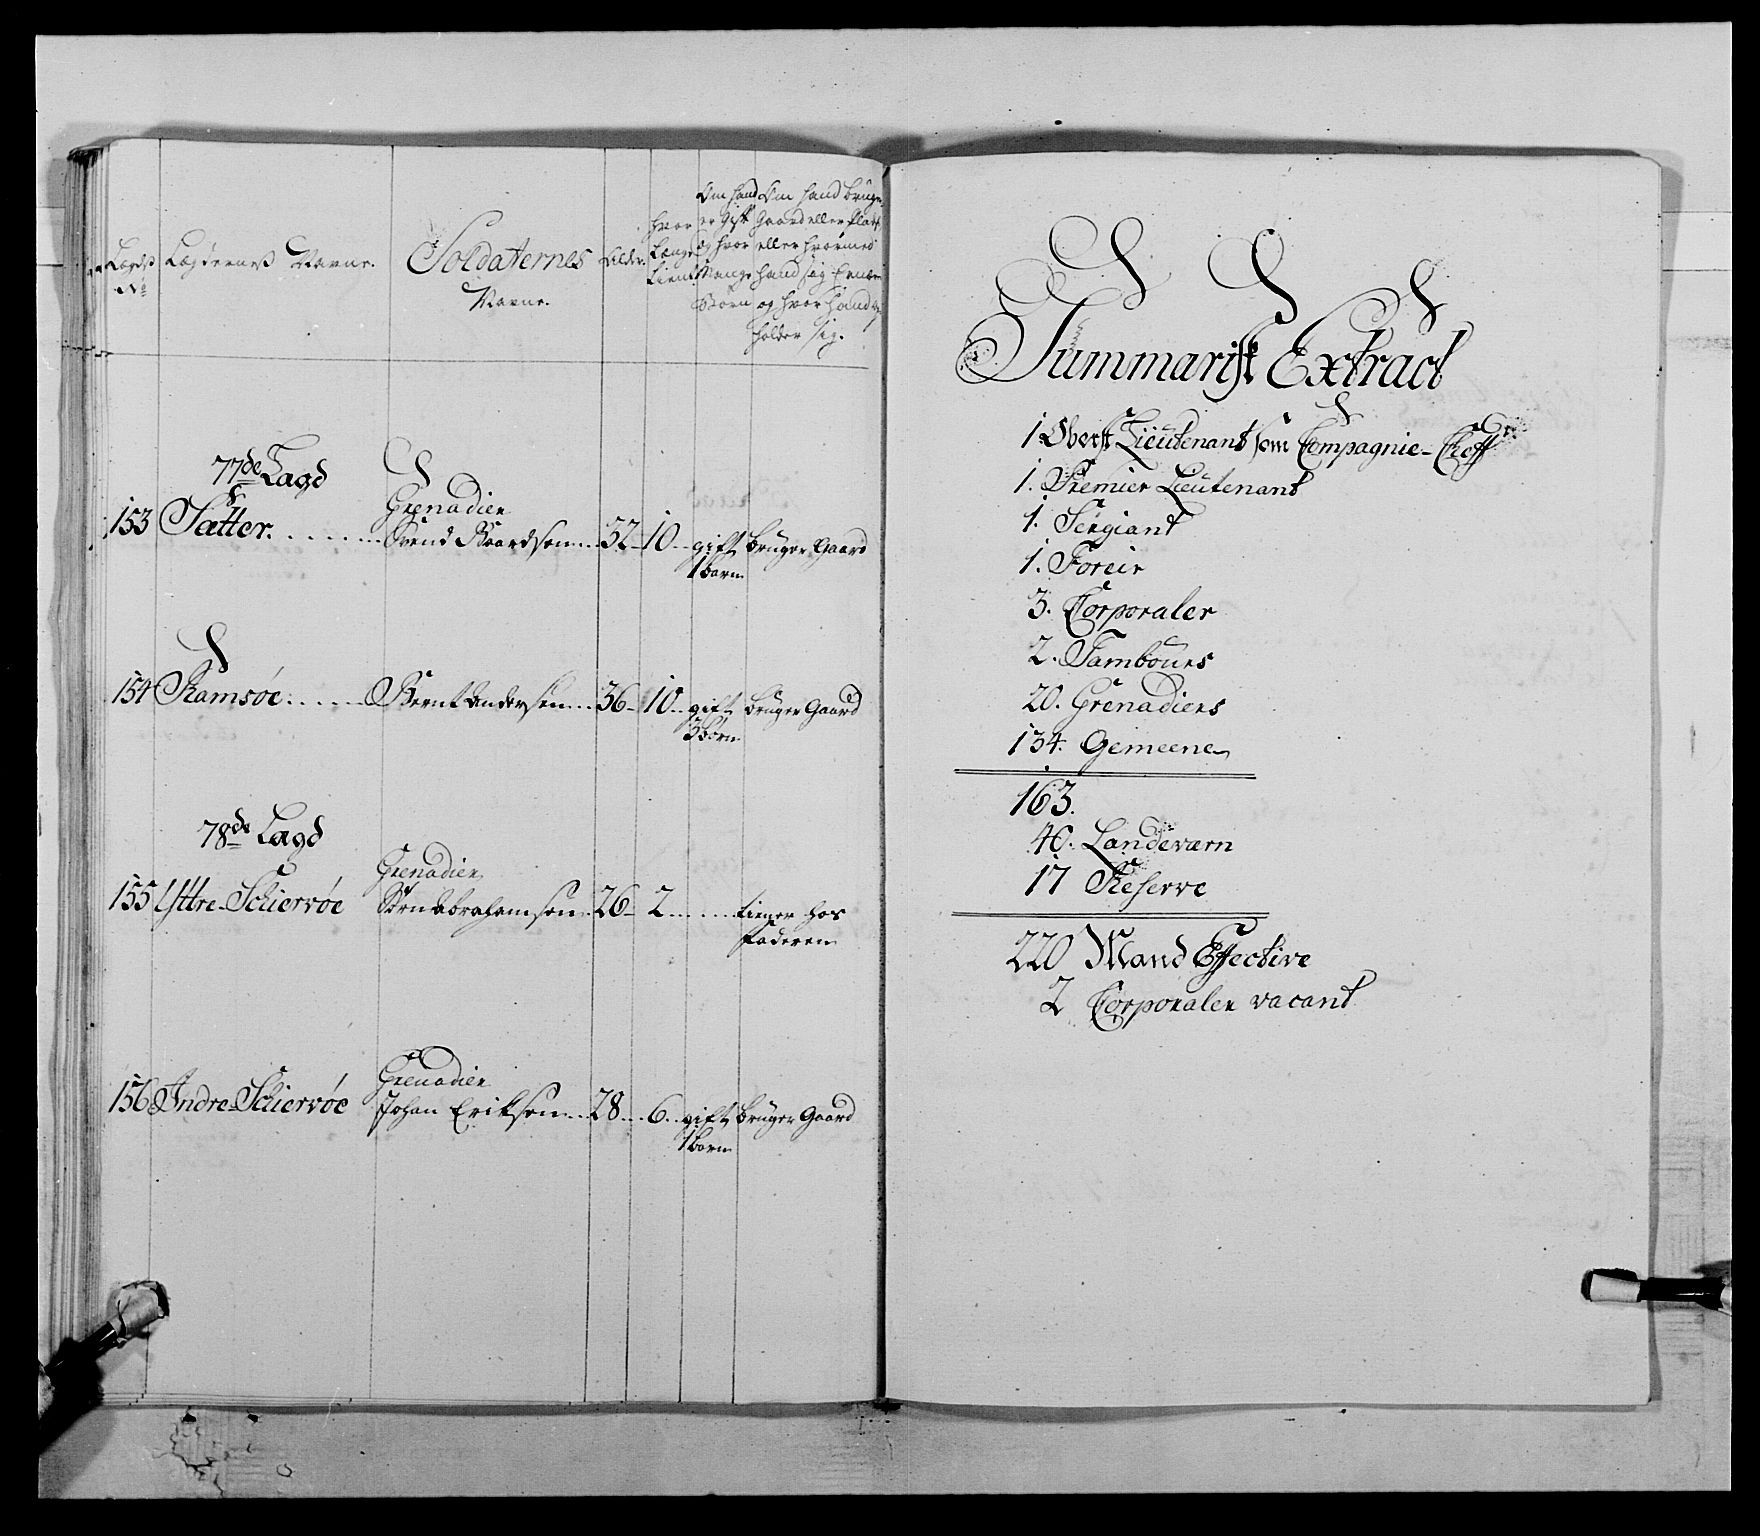 Lægds No
Lægdernes Navne.
Soldaternes Navne.
Alder.
hvor Længe tient
Om hand er Gift og hvor Mange Børn
Om hand bruger Gaard eller Plads eller hvormed hand sig Ernær og hvor hand op holder sig.
77de Lægd
153 Sætter. Grenadier
Svend Baardsen 32 10 gift bruger Gaard
1 barn
154 Ramsøe Bernt Andersen 36 10 gift bruger Gaard
3 børn
78de Lægd
155 Yttre-Schiervøe Grenadier
Abrahamsen 26 2 tiener hos
faderen
156 Indre-Schiervøe Grenadier
Johan Eriksen 28 6 gift bruger Gaard
1 barn
Summarisk Extract
1 Oberst Lieutenant som Compagnie-Cheff
1. Premier Lieutenant
1. Sergiant
1. Foreir
3. Corporaler
2. Tambours
20. Grenadiers
134. Gemeene
163.
40. Landeværn
17 Reserve
220 Mand Effective
2 Corporaler vacant